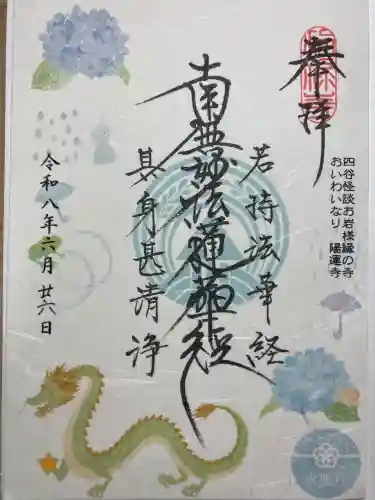 奉拝
四谷怪談お岩様縁の寺
おいわいなり 陽運寺
若持法華経
南無妙法蓮華経
其身甚清浄
令和八年六月廿六日
水無月